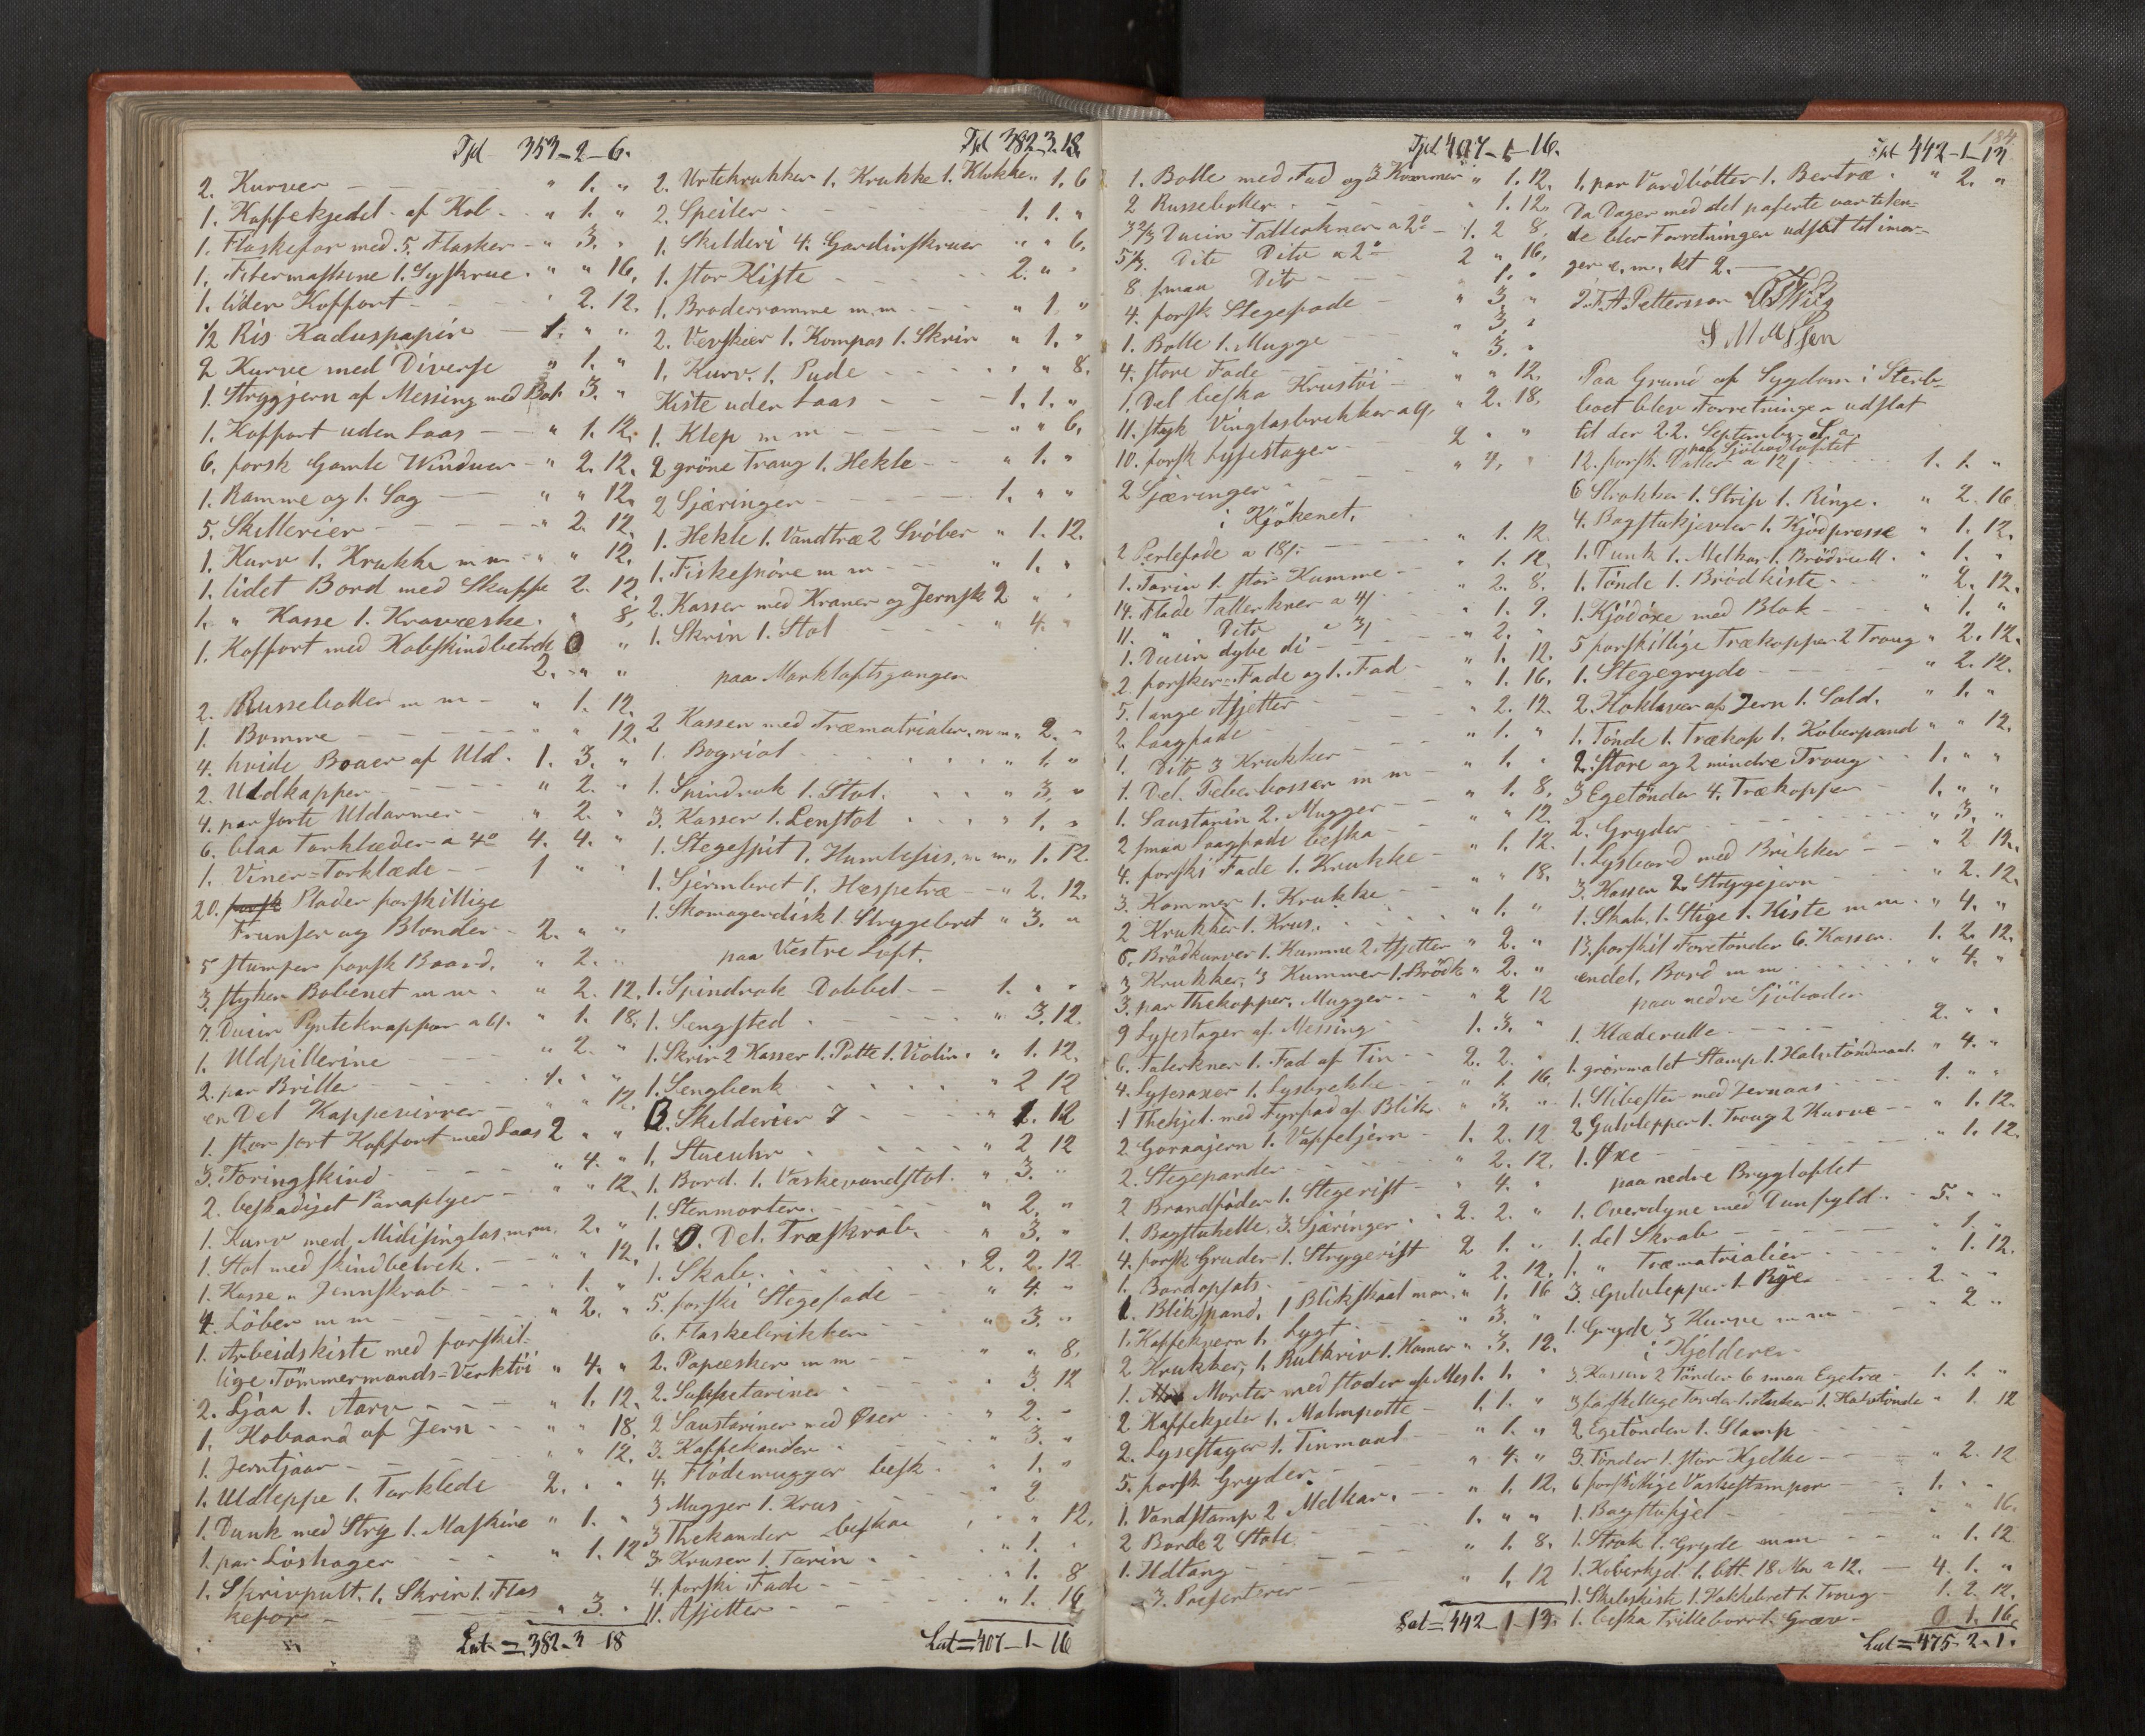 Tpl 353-2-6.
2. Kurver - " 1. "
1. Kaffekjedel af Kob. - " 1. "
1. Flaskefor med 5. Flasker - " 3. "
1. Fitermaskine 1. Syskrue. " " 16.
1. liden Koffort - " 2. 12.
1/2 Ris Karduspapir - 1. " "
2 Kurve med Diverse " 1. "
1. Strygjern af Messing med Bolt 3. "
1. Koffort uden Laas - " 1. 12.
6. forsk Gamle Vinduer - " 2. 12.
1. Ramme og 1. Sag - " " 12.
5. Skillerier - " 2. 12.
1. Kurv 1. Krukke m m - " " 12.
1. lidet Bord med Skuffe 2. 12.
1. " Kasse 1. Kravæske. " 8.
1. Koffort med Kobskindbetræk
2. " "
2. Russeboller m m - " 1. 12.
1. Bomme - " " 12.
4. hvide Boaer af Uld. 1. 3. "
2. Uldkapper - " 2. "
4. par sorte Uldarmer - " 2. "
6. blaa Tørklæder a 4o 4. 4. "
1. Viner=Tørklæde - 1 " "
20. Plader forskillige
Frunser og Blonder - 2. " "
5 stumper forsk Baand. " 2. "
3. styker Bobenet m m - " 2. 12.
7. Dusin Pynteknapper a 6/. " 1. 18.
1. Uldpillerine " 2. "
2. par Briller - 4. "
en Del Kappevirrer - " " 12.
1. stor sort Koffort med Laas 2 " "
3. Foringskind - " 4. "
2. beskadiget Paraplyer - " " 12.
1. Kurv med Midisinglas m.m. 2. "
1. Stol med skindbetrek. - " " 12.
1. Kasse " Jernskrab - " 1. "
4. Löber m m - " 2. "
1. Arbeidskiste med forskil-
lige Tömmermands=Verktöi " 4. "
2. Ljaa 1. Aarv - " 1. 12.
1. Kobaand af Jern - " " 18.
1. Jerntjaar - " " 12.
1. Uldteppe 1. Tørklede 2. " "
1. Dunk med Stry 1. Maskine " 1. "
1. par Löshager - " 1. 12
1. Skrivpult. 1. Skrin 1. Flas
kefor - " 3. "
Lat = 382-3-18
Tpl 382.3.18.
2. Urtekrukker 1. Krukke 1. Klokke " 1. 6
2. Speiler - 1. 1. "
1. Skilderi 4. Gardinskruer " " 6.
1. stor Kiste - 2. " "
1. Broderramme m.m. - " 1. "
2. Verskier 1. Kompas 1. Skrin " 1. "
1. Kurv. 1. Pude - " " 8.
Kiste uden Laas - 1. 1. "
1. Klep m m - " " 6.
2 gröne Traug 1. Hekle - " 1. "
2 Sjæringer - 1. " "
1. Hekle 1. Vandtræ 2 Svöber " 1. 12.
1. Fiskesnöre m m - " 1. "
2. Kasser med Kraner og Jernsk 2 " "
1. Skrin 1. Stol " 4. "
paa Mørkloftsgangen
2 Kasser med Træmatrialer, m m " 2. "
1. Bogriol " 1. "
1. Spindrok 1. Stol. " 3. "
3. Kasser 1. Lenstol " 1. "
1. Stegespit 1. Humlesus, m m " 1. 12.
1. Sjermbret 1. Haspetræ - " 2. 12.
1. Skomagerdisk 1. Strygebret " 3. "
paa Vestre Loft.
1. Spindrok Dobbel - 1. " "
1. Sengsted " 3. 12.
1. Skrin 2 Kasser 1. Potte 1. Violin. " 1. 12.
1. Sengbenk " 2 12
Skilderier 7 - " 1. 12
1. Stueuhr " 2 12
1. Bord. 1. Vaskevandstol. " 3. "
1. Stenmorter. " 2. "
1. Del. Træskrab. " 3. "
1. Skab. 2. 2. 12
5. forski Stegefade " 4. "
6. Flaskebrikker " 3. "
2. Papæsker m m - " " 8.
2. Suppetariner " 3. 12
2 Saustariner med Øser " 2. "
3. Kaffekander " 3. "
4. Flödemugger besk. " 1. "
3 Mugger 1. Krus - " 2
3 Thekander beska " " 12.
3. Kruser 1. Tarin - " 1. "
4. forski Fade - " 1. 8
11. Asjetter - " 1. 16
Lat = 407-1-16
Tpl 407-1-16.
1. Bolle med Fad og 3 Kommer " 1. 12.
2 Russeboller - " 1. 12.
3 2/3 Dusin Tallerkner a 2o - 1. 2 8.
5 1/3. Dito Dito a 2o 2 " 16.
8 smaa Dito - 1. "
4. forsk Stegefade - " 3. "
1. Bolle 1. Mugge - " 3. "
4. store Fade - " 3. "
1. Del beska Krustöi - " " 12.
11. styk Vinglasbrikker a 6/. " 2. 18.
10. forsk Lysestager - 2 " "
2 Sjæringer - " 4. "
i Kjökenet.
2 Perlefade a 18/. - " 1. 12.
1. Tarin 1. stor Kumme - " 1. 12.
14. Flade Tallerkner a 4/ " 2. 8.
11. " Dito a 3/ " 1. 9.
1. Dusin dybe di - " 2. "
2 forsker Fade og 1. Fad - " 1. 12.
5. lange Asjetter - " 1. 16.
2. Laagfade - " 2. 12.
1. Dito 3 Krukker - " 1. "
1. Del. Peberbosser m m - " 1. "
1. Saustarin 2. Mugger - " 1. 8.
2 smaa Laagfade beska - " " 12.
4. forski Fade 1. Krukke - " 1. 12.
3. Kommer 1. Krukke - " " 18.
2 Krukker 1. Krus. " 1. "
6. Brödkurver 1. Kumme 2. Asjetter " 2. "
3 Krukker, 3 Kummer 1. Brödk " 2. "
3. par Thekopper, Mugger. - " 2 12
9 Lysestager af Messing 1. 3. "
6. Talerkner 1. Fad af Tin - 2. 2. "
4. Lysesaxer 1. Lysbrekke - " 1. 16.
1 Thekjel. med Fyrfad af Blik. " 3. "
2 Goraajern 1. Vaffeljern - 1. 2. 12
2. Stegepander - " 2. 12.
2 Brandföder 1. Stegerist - " 4. "
1. Bagstuhelle. 3. Sjæringer. 2. 2. "
4. forsk Gruder 1. Strygerist 2 1. "
1. Bordopsats - " 2. 12.
1. Blikspand, 1 Blikskaal m m. " 1. 16
1. Kaffekvern 1. Lygt - " 3. "
2 Krukker, 1. Rulkniv 1. Hamer " 3. 12.
1. Morter med stöder af Mes 1. 1. "
2 Kaffekjeler 1. Malmpotte - 1. 1. "
2. Lysestager 1. Tinmaal - " 1. "
5. forsk Gryder. - " 4. "
1. Vandstamp 2 Melkar. - " 1. 12.
2 Borde 2 Stole. - 1. " "
1. Ildtang - " 1. 8.
3. Presenterer - " 1. 12
Lat = 442-1-13.
184
Tpl 442-1-13
1. par Vandbötter 1. Bertræ. " 2. "
Da Dagen med det paserte var tilen-
de blev Forretningen udsat til imor-
gen e. m. kl 2. -
J. F. A. Pettersson
Paa Grund af Sygdom i Sterb-
boet blev Forretningen udslat
til den 22. Septembr. S. a.
paa Sjöbodloftet
12. forsk. Dalter a 12/. - 1. 1. "
6 Strokker 1. Strip 1. Ringe. " 2. 16
4. Bagstukjevler 1. Kjödpresse " 1. 12.
1. Dunk 1. Melkar 1. Brödrull. " 1. "
1. Tönde 1. Brödkiste - " 2. 12.
1. Kjödöxe med Blok " 1. "
5 forskillige Trækopper 2 Traug " 2. 12.
1. Stegegryde - " 2. 12.
2. Hoklaver af Jern 1. Sold. " 1. "
1. Tönde 1. Trækop 1. Koberpand " " 12.
2. store og 2 mindre Traug - 1. " "
3 Egetönder 4. Trækopper - 1. " "
2. Gryder " 3. "
1. Lysbord med Brikker - " 2 12.
3. Kasser 2. Strygejern " 2. 12.
1. Skab. 1. Stige 1. Kiste m m " 4. "
13. forskil Foretönder 6. Kasser. 1. 2. 12.
endel. Bord m m " 4. "
paa nedre Sjöboden
1. Klæderulle - 2. " "
1. grönmalet Stamp 1. Halvtöndmaal " 4. "
1. Slibesten med Jernaas - 1. " "
2 Gulvtepper 1. Traug 2 Kurve - " 1. 12.
1. Øxe - " 1. 12.
paa nedre Brygloftet
1. Overdyne med Dunfyld - 5. " "
1. del Skrab - " 1. "
1. " Træmatrialier " 1. 12.
3. Gulvtepper 1. Rye - 2. " "
1. Gryde 3 Kurve m m - " 2 "
i Kjelderen -
3. Kasser 2 Tönder 6 smaa Egetræ - 1. 1. "
3 forskellige Tönder 1. Anker 1. Halvtönde " 1. 12
2 Egetönder 1. Stamp
3. Tönder 1. stor Kjelke - " 2. 12
6 forskillige Vaskestamper - 1. "
1. Bagstukjel - " " 16.
1. Strok 1. Gryde m m - " 1. 12
1. Koberkjel. 1. btt. 18 Mrk a 12. - 4. 1. "
1. 1. Hakkebret 1. Traug - 1. 2. 12.
1. beska Trillebør 1. Grev - 1. 16.
Lat = 475-2-1.